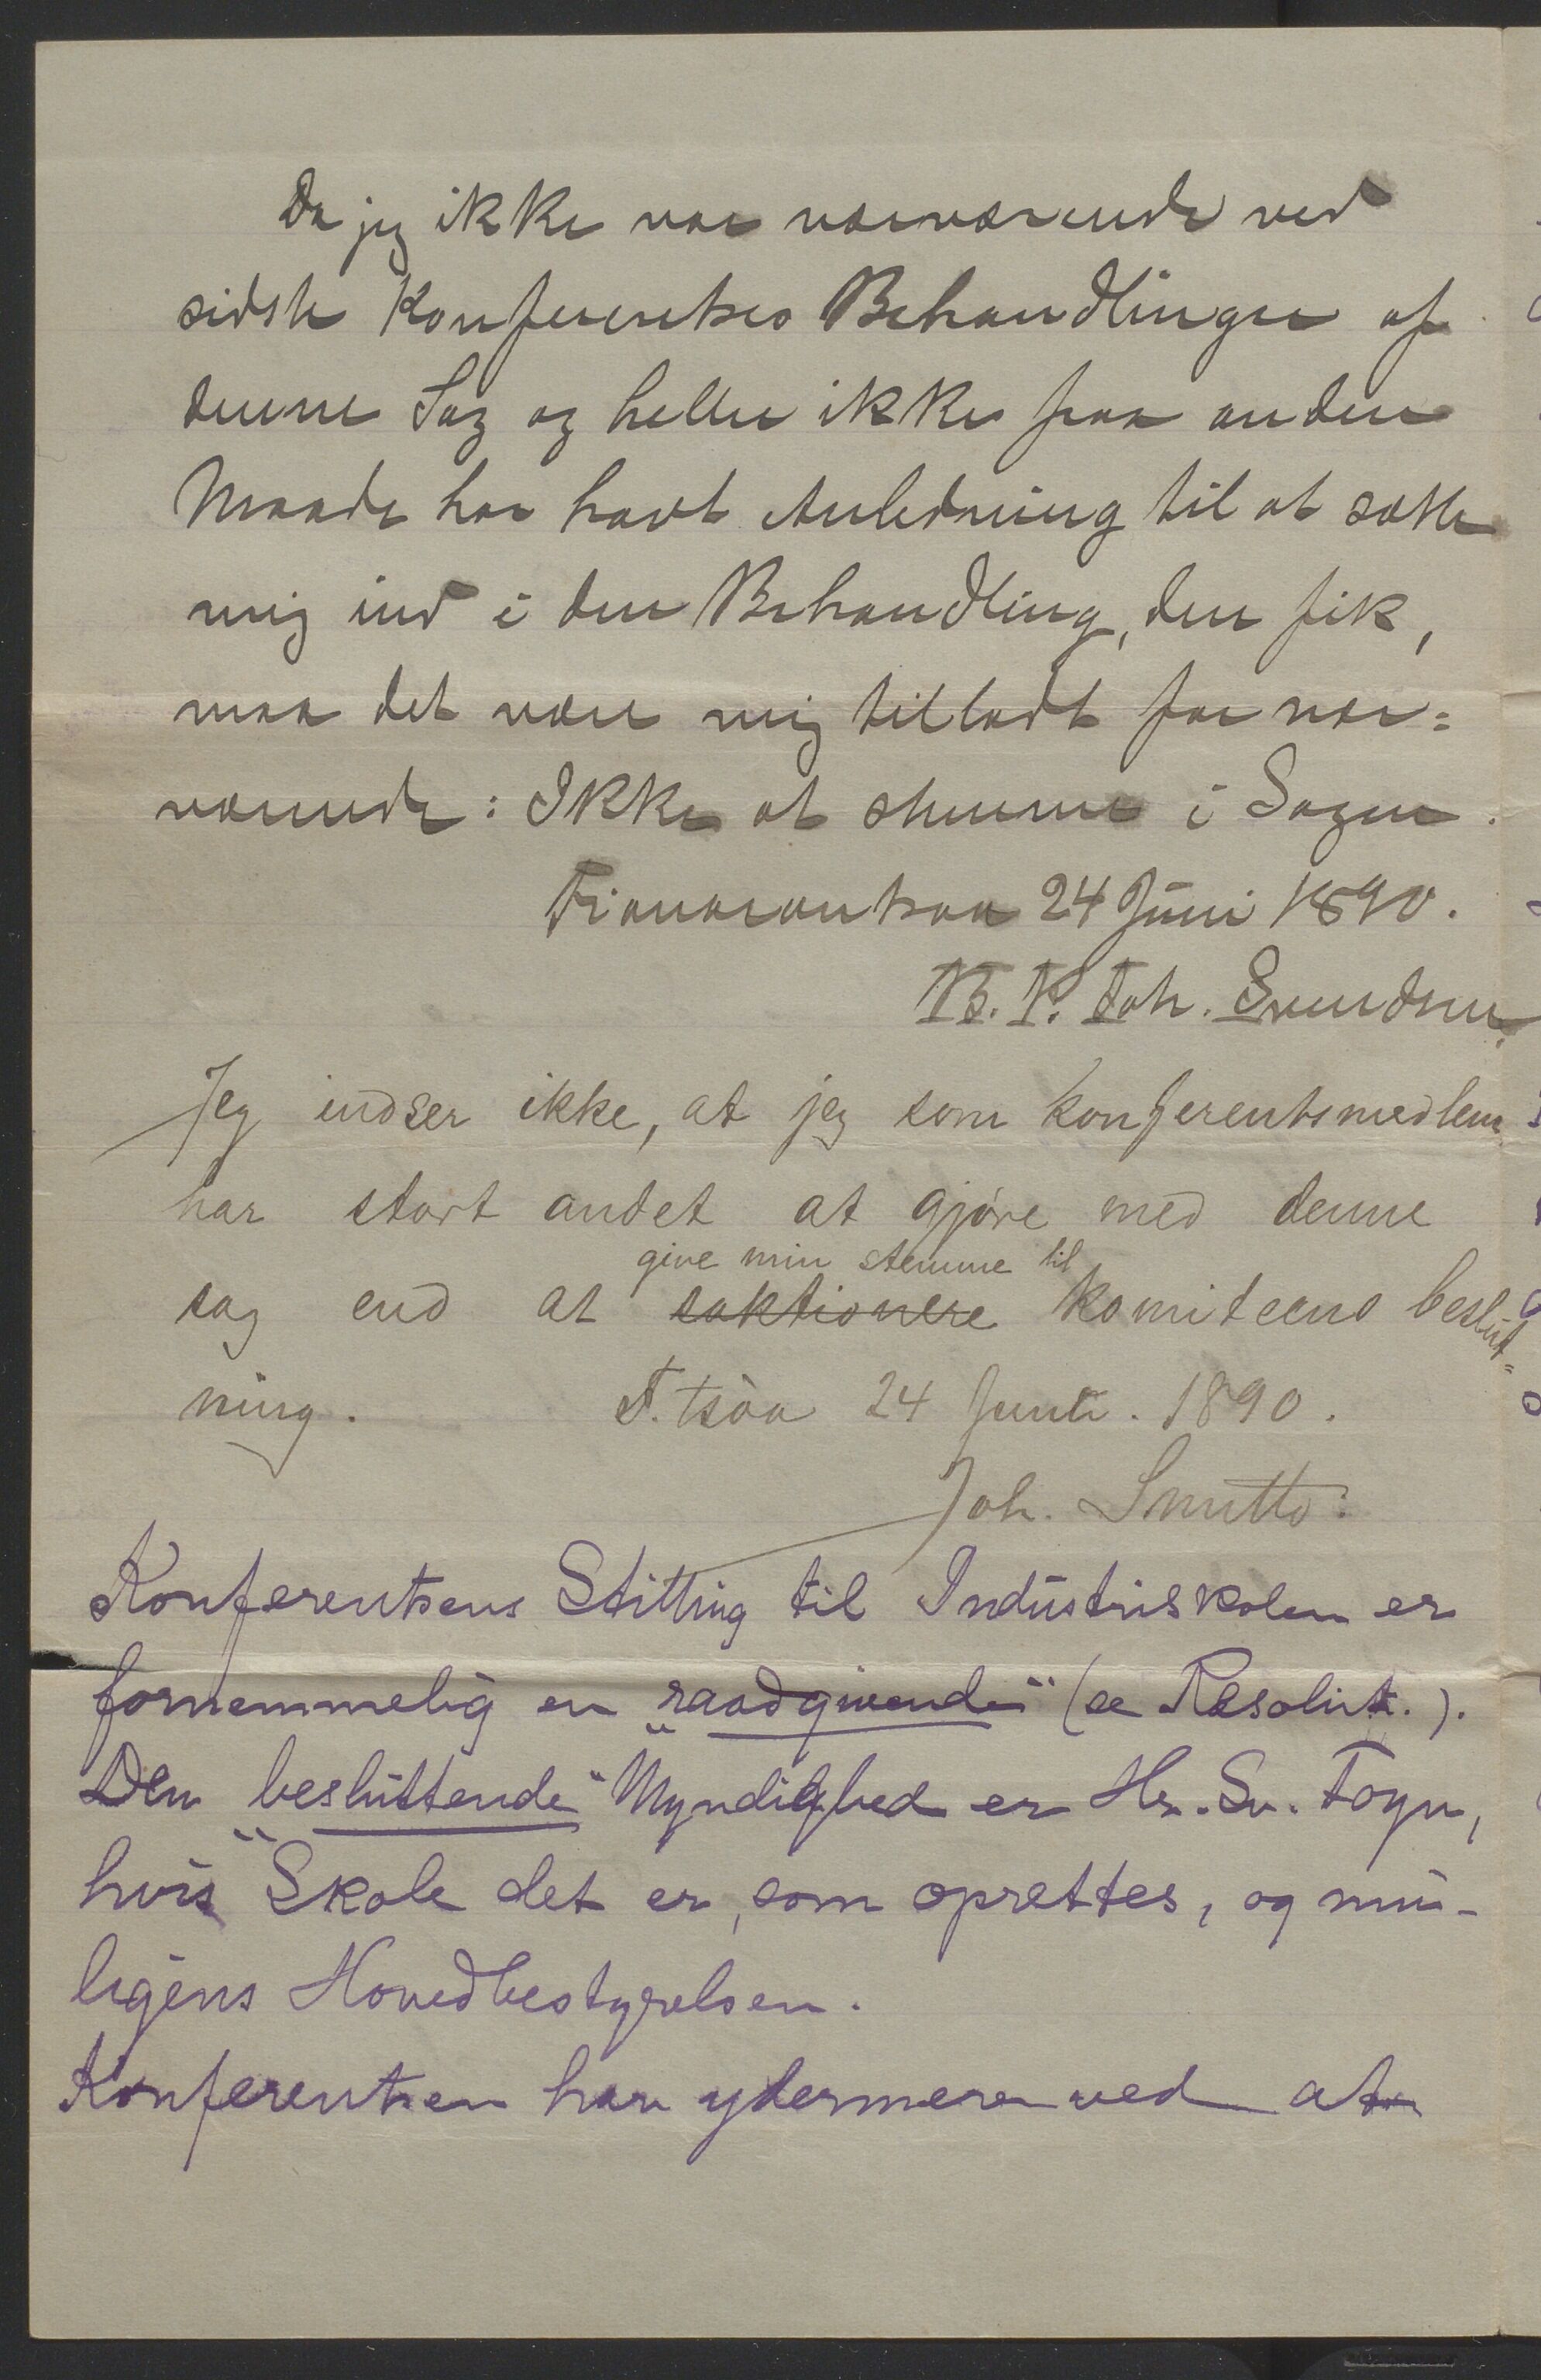 Da jeg ikke var nærværende ved
sidste Konferentses Behandlinger af
denne Sag og heller ikke paa anden
Maade har havt Anledning til at sætte
mig ind i den Behandling, den fik,
maa det være mig tilladt for nær=
værende: Ikke at stemme i Sagen.
Fianarantsoa 24 Juni 1890.
Joh. Svendsen
Jeg indser ikke, at jeg som konferentsmedlem
har stort andet at gjøre med denne
give min stemme til
sag end at saktionere komiteens beslut=
ning. F.tsòa 24 Juni. 1890.
Joh. Smitto:
Konferentsens Stilling til Industriskolen er
fornemmelig en "raadgivende" (se Resolut.).
Den "besluttende" Myndighed er Hr. Sv. Foyn,
hvis Skole det er, som oprettes, og mu-
ligens Hovedbestyrelsen.
Konferentsen har ydermere ved at